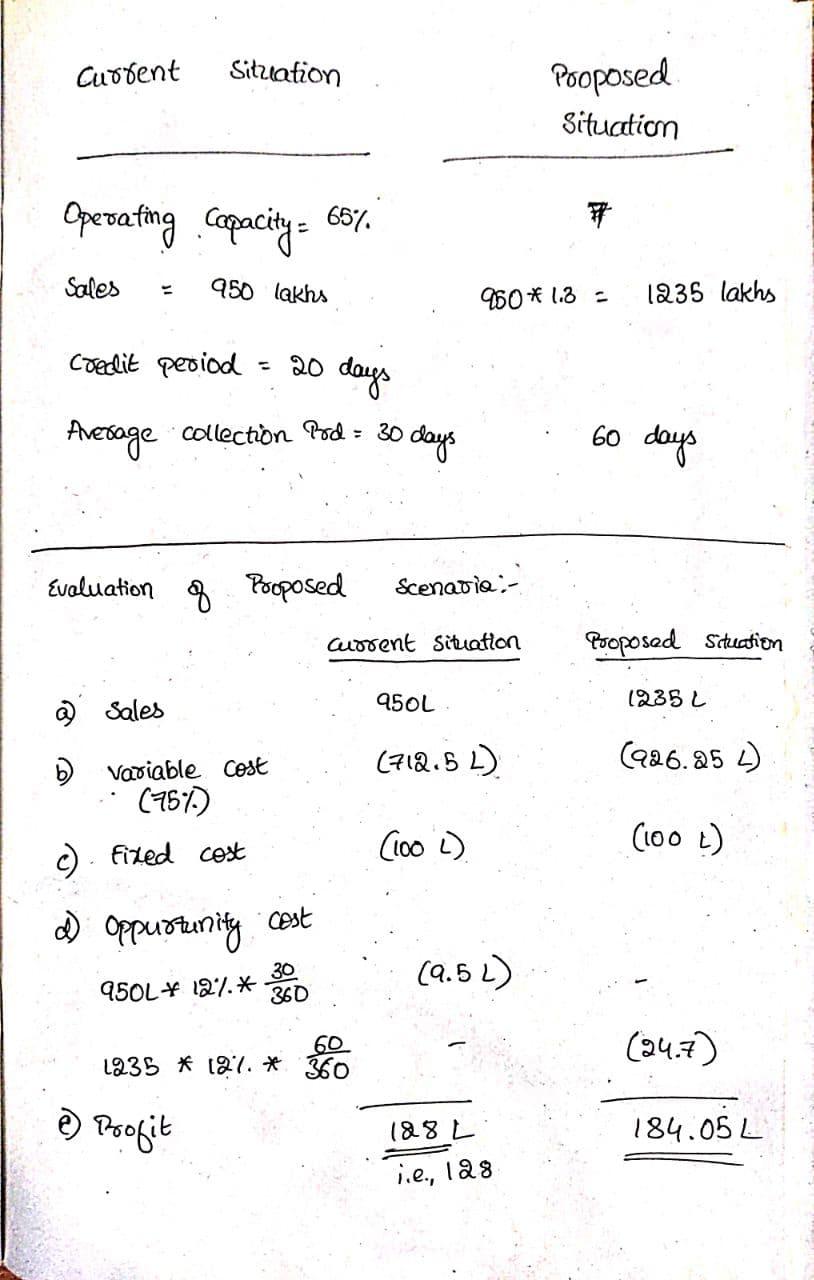 Current Situation
Proposed
Situation
Operating Capacity = 65%
Sales = 950 lakhs
950 * 1.3 = 1235 lakhs
Credit period = 20 days
Average collection Prd = 30 days
60 days
Evaluation of Proposed Scenario:-
Current Situation
Proposed Situation
a) Sales
950L
1235 L
b) Variable Cost
(712.5 L)
(926.25 L)
(75%)
c) Fixed cost
(100 L)
(100 L)
d) Oppurtunity cost
950L * 12% * 30/360
(9.5 L)
-
1235 * 12% * 60/360
-
(24.7)
e) Profit
128 L
184.05 L
i.e., 128